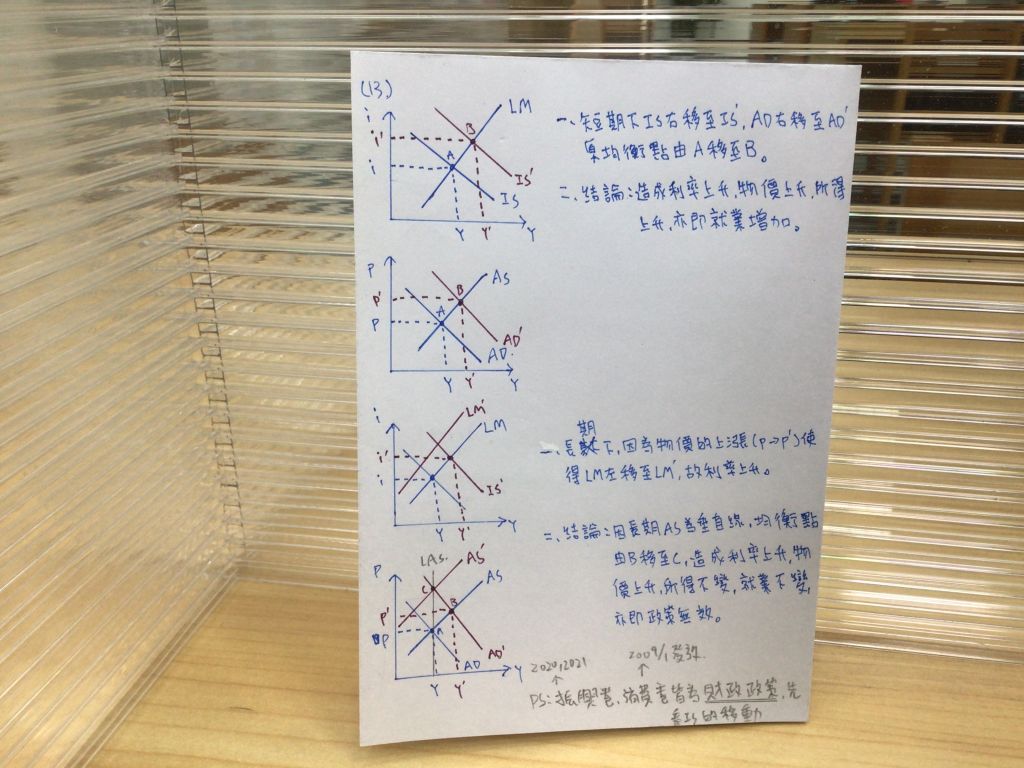 (13)
i
LM
i'
B
i
A
IS'
IS
Y
Y'
Y
一、短期下IS右移至IS', AD右移至AD'
原均衡點由A移至B。
二、結論:造成利率上升,物價上升,所得
上升,亦即就業增加。
P
AS
P'
B
P
A
AD'
AD
Y
Y'
Y
i
LM'
LM
i'
i
IS'
Y
Y'
Y
期
一、長下,因為物價的上漲(P→P')使
得LM左移至LM',故利率上升。
二、結論:因長期AS為垂直線,均衡點
由B移至C,造成利率上升,物
價上升,所得不變,就業不變,
亦即政策無效。
P
LAS
AS'
C
AS
P'
B
P
A
AD'
AD
Y
Y'
Y
2020,2021
2009/1發放
PS:振興卷、消費卷皆為財政政策,先
看IS的移動